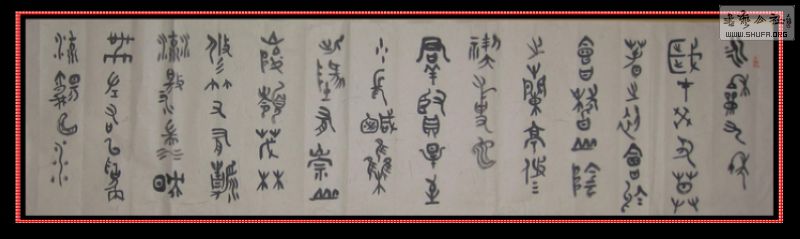 永和九年
歲在癸丑暮
春之初會於
會稽山陰
之蘭亭脩
禊事也
群賢畢至
少長咸集
此地有崇山
峻嶺茂林
脩竹又有清
流激湍映
帶左右引以為
流觴曲水
WWW.SHUFA.ORG